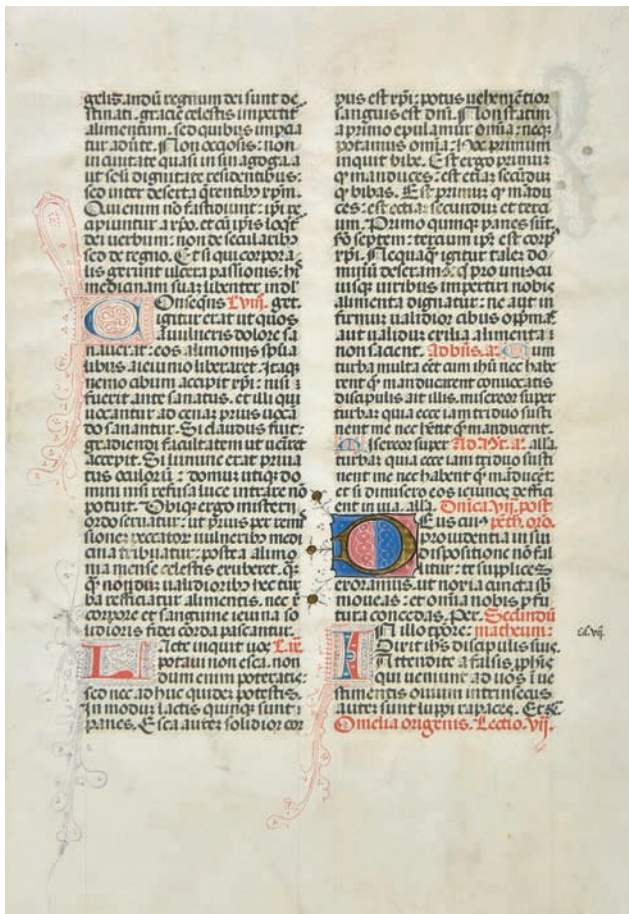 gelis. andū regnum dei sunt de
stinati. gracie celestis impertit
alimentum. sed quibus impcia
tur adūte. Non ociosis: non
in ciuitate quasi in sinagoga. a
ut seli dignitate residentibus:
sed inter deserta q̄rentibꝫ xp̄m.
Qui enim nō fastidiunt: ip̄i re
cipiuntur a xp̄o. et cū ip̄is loqt̄
dei uerbum: non de secularibꝫ
sed de regno. Et si qui corpora
lis gerunt ulcera passionis: hi͛
medicinam suam libenter indl͛
Onseqn̄s L viij. get.
igitur erat ut quos
a uulneris dolore sa
nauerat: eos alimoniis sp̄ua
libus a ieiunio liberaret. Itaqꝫ
nemo cibum accepit xp̄i: nisi
fuerit ante sanatus. et illi qui
uocantur ad cenam prius uocā
do sanantur. Si claudus fuit:
gradiendi facultatem ut ueniret
accepit. Si lumine erat priua
tus oculorū: domum utiqꝫ do
mini nisi refusa luce intrare nō
potuit. Ubiqꝫ ergo misterii
ordo seruatur: ut prius per remi
sionem peccatorum uulneribꝫ medi
cina tribuatur: postea alimo
nia mense celestis exuberet. qͣ
qͣ nondum ualidioribꝫ hec tur
ba reficiatur alimentis. nec x̄
corpore et sanguine ieiuna so
lidioris fidei corda pascantur.
Lacte inquit uos L.ix.
potaui non esca. non
dum enim poteratis:
sed nec adhuc quidem potestis.
In modum lactis quinqꝫ sunt
panes. Esca autem solidior cor
pus est xp̄i: potus uehementior
sanguis est dn̄i. Non statim
a primo epulamur om̄ia: neqꝫ
potamus om̄ia: Hoc primum
inquit bibe. Est ergo primum
ꝙ manduces: est etiam secundum
ꝙ bibas. Est primum ꝙ mandu
ces: est etiam secundum et terci
um. Primo quinqꝫ panes sūt.
sc̄do septem: tercium ip̄m est corpꝰ
xp̄i. Nequaqͣ igitur talem do
minum deseramus. qͥ pro uniuscu
iusqꝫ uiribus impertiri nobis
alimenta dignatur: ne aut in
firmum ualidior cibus opprimat
aut ualidum exilia alimenta
non sacient. Ad bn̄s. a. Cum
turba multa eēt cum ih̄u nec habe
rent qͩ manducarent conuocatis
discipulis ait illis. misereor super
turbam quia ecce iam triduo susti
nent me nec hn̄t qͩ manducent.
Misereor super Ad Mt. a. alla.
turbam quia ecce iam triduo susti
nent me nec habent qͩ māducēt:
et si dimisero eos ieiunos deffici
ent in uia. alla. Dn̄ica. vij. post
Deus cuiꝰ peth. oro.
prouidentia in sui
dispositione nō fal
litur: te supplices
exoramus. ut noxia cuncta sb
moueas: et om̄ia nobis pfu
tura concedas. Per. Secundū
In illo tp̄ore: matheum:
Dixit ih̄s discipulis suis.
Attendite a falsis. pphīs
qui ueniunt ad uos ī ue
stimentis ouium intrinsecus
autem sunt lupi rapaces. Et c̄.
Omelia origenis. Lectio. vij.
ca. vij.